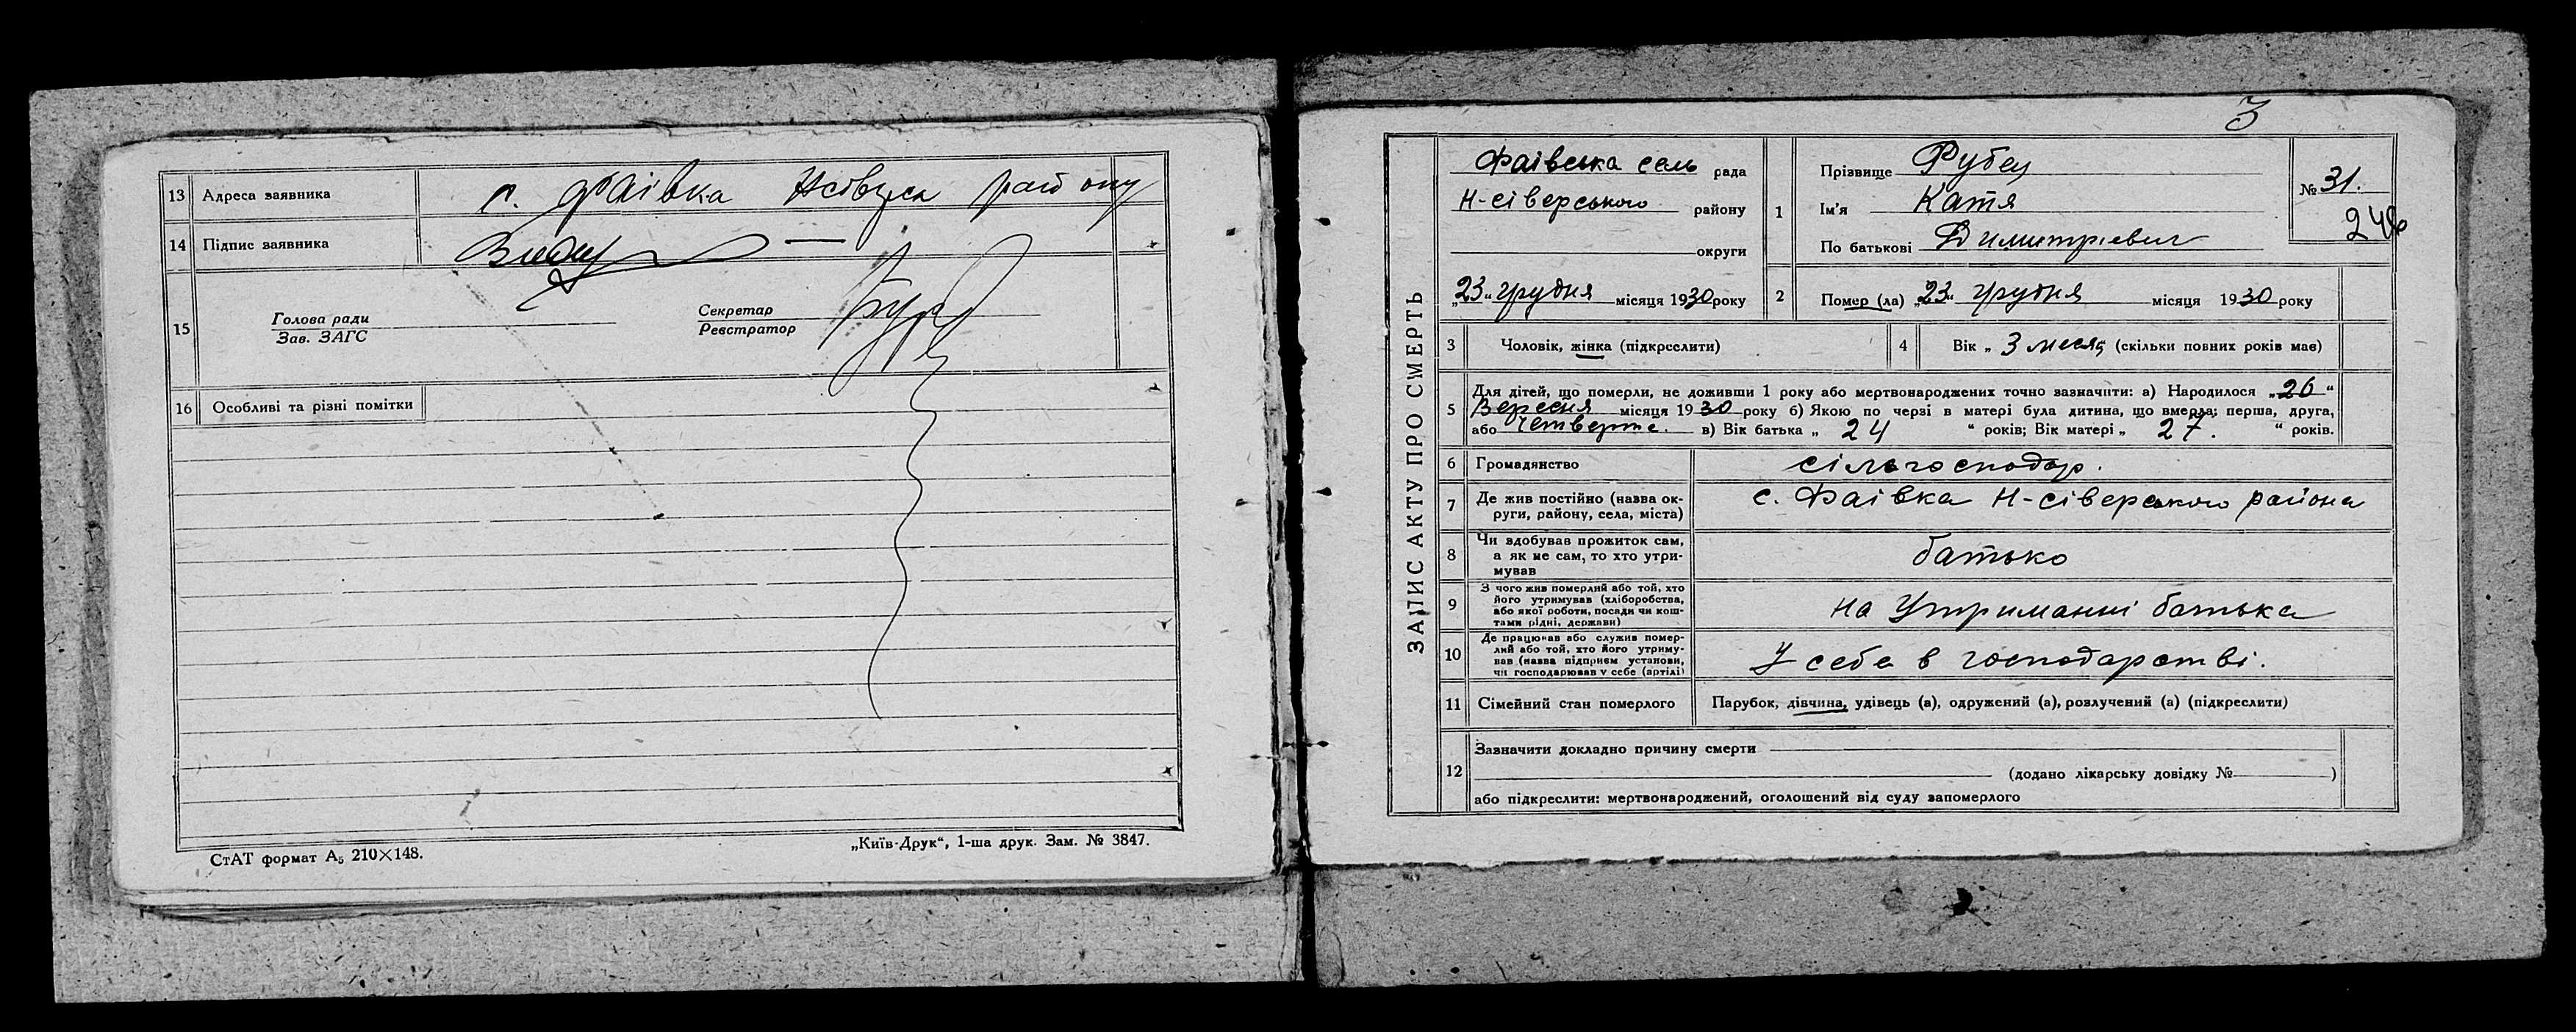 13 Адреса заявника с. Фаівка Нсіверск району
14 Підпис заявника
15 Голова ради
Зав. ЗАГС
Секретар
Реєстратор
16 Особливі та різні помітки
СтАТ формат А₅ 210×148.
„Київ-Друк“, 1-ша друк. Зам. № 3847.
3
ЗАПИС АКТУ ПРО СМЕРТЬ
Фаівська сель рада
Н-сіверського району
округи
„23“ грудня місяця 1930 року
1 Прізвище Рубец
Ім'я Катя
По батькові Димитріевич
№ 31.
246
2 Помер (ла) „23“ грудня місяця 1930 року
3 Чоловік, жінка (підкреслити)
4 Вік „ 3 месяц (скільки повних років мав)
5 Для дітей, що померли, не доживши 1 року або мертвонароджених точно зазначити: а) Народилося „26“
Вересня місяця 1930 року б) Якою по черзі в матері була дитина, що вмерла: перша, друга,
або четверта. в) Вік батька „ 24 “ років; Вік матері „ 27. “ років.
6 Громадянство сільгосподар.
7 Де жив постійно (назва ок-
руги, району, села, міста) с. Фаівка Н-сіверського района
8 Чи здобував прожиток сам,
а як не сам, то хто утри-
мував батько
9 З чого жив померлий або той, хто
його утримував (хліборобства,
або якої роботи, посади чи кош-
тами рідні, держави) на Утриманні батька
10 Де працював або служив помер-
лий або той, хто його утриму-
вав (назва підприєм установи,
чи господарював у себе (артілі) У себе в господарстві.
11 Сімейний стан померлого Парубок, дівчина, удівець (а), одружений (а), розлучений (а) (підкреслити)
12 Зазначити докладно причину смерти
(додано лікарську довідку № )
або підкреслити: мертвонароджений, оголошений від суду запомерлого